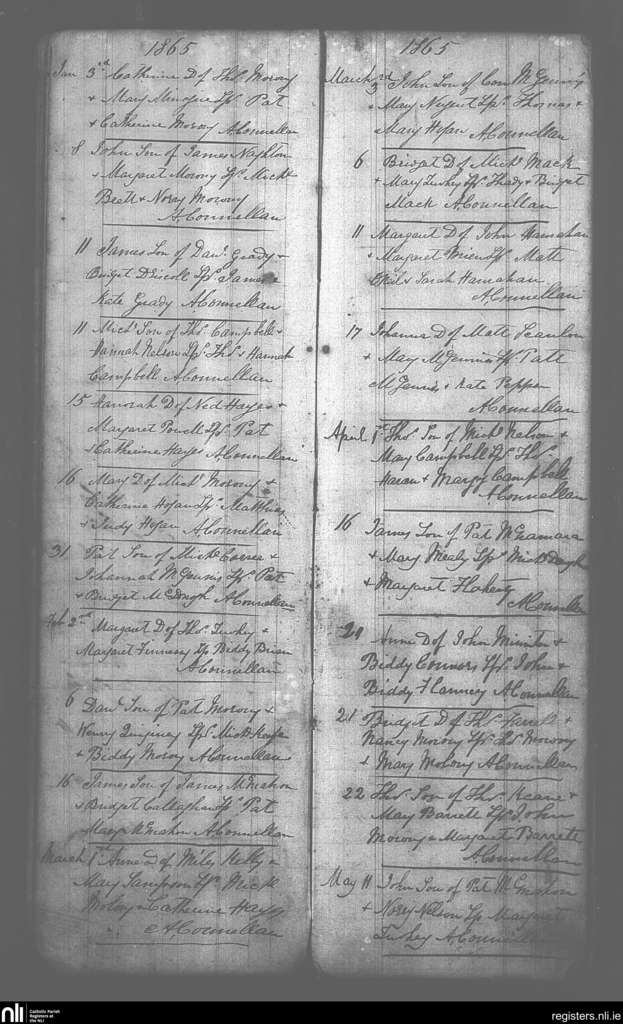 1865
Jan 3rd Catherine D of Thos Morony
& Mary Sps Pat
& Catherine Morony A Connellan
8 John Son of James Naghton
& Margaret Morony Sps Michl
& Norry Morony
A Connellan
11 James Son of Danl Grady &
Bridget Driscoll Sps James &
Kate Grady A Connellan
11 Michl Son of Thos Campbell &
Hannah Nelson Sps Thos & Hannah
Campbell A Connellan
15 Hanorah D of Ned Hayes &
Margaret Powell Sps Pat
& Catherine Hayes A Connellan
16 Mary D of Michl Morony &
Catherine Hogan Sps Matthias
& Judy Hogan A Connellan
31 Pat Son of Michl &
Johannah McGennis Sps Pat
& Bridget McDongh A Connellan
Feb 2nd Margaret D of Thos Tuohey &
Margaret Finnassy Sps Biddy Brien
A Connellan
6 Danl Son of Pat Morony &
Sps Michl
& Biddy Morony A Connellan
16 James Son of James McMahon
& Bridget Callaghan Sps Pat
McMahon A Connellan
March 1st Anne D of Miles Kelly &
Mary Sampson Sps Mick
Molony & Catherine Hayes
A Connellan
1865
March 3rd John Son of Con McGennis
& Mary Nugent Sps Thomas &
Mary Hogan A Connellan
6 Bridget D of Michl Mack
& Mary Tuohey Sps Thady & Bridget
Mack A Connellan
11 Margaret D of John Hannahan
& Margaret Brien Sps Matt
& Sarah Hannahan
A Connellan
17 Johanna D of Matt Scanlon
& Mary McGennis Sps Patt
McGennis & Kate Pepper
A Connellan
April 1st Thos Son of Michl Nelson &
Mary Campbell Sps Thos
& Margt Campbell
A Connellan
16 James Son of Pat McNamara
& Mary Mealy Sps Michl
& Margaret Flaherty
A Connellan
21 Anne D of John Miniter &
Biddy Connors Sps John &
Biddy Flannery A Connellan
21 Bridget D of Thos Farrell &
Nancy Morony Sps Thos Morony
& Mary Molony A Connellan
22 Thos Son of Thos Keane &
Mary Barrett Sps John
Morony & Margaret Barrett
A Connellan
May 11 John Son of Pat
& Norry Nelson Sps Margaret
Tuohey A Connellan
nli
Catholic Parish
Registers at
the NLI
registers.nli.ie